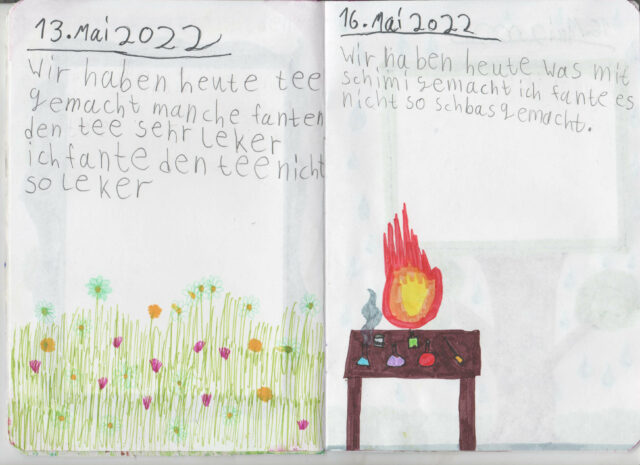 13. Mai 2022
Wir haben heute tee
gemacht manche fanten
den tee sehr leker
ich fante den tee nicht
so leker
16. Mai 2022
Wir haben heute was mit
schimi gemacht ich fante es
nicht so schbas gemacht.